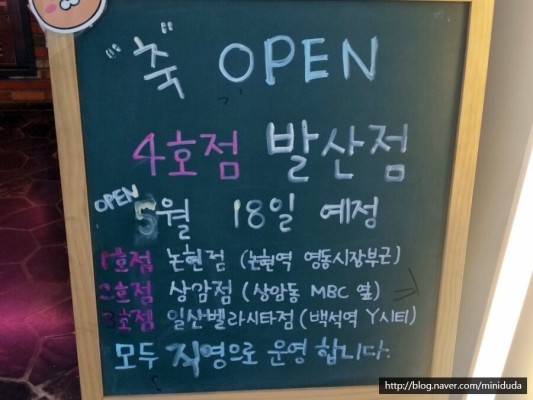 "축" OPEN
4호점 발산점
OPEN
5월 18일 예정
1호점 논현점 (논현역 영동시장부근)
2호점 상감점 (상암동 MBC 옆)
3호점 일산벨라시타점 (백석역 Y시티)
모두 직영으로 운영합니다.
http://blog.naver.com/miniduda